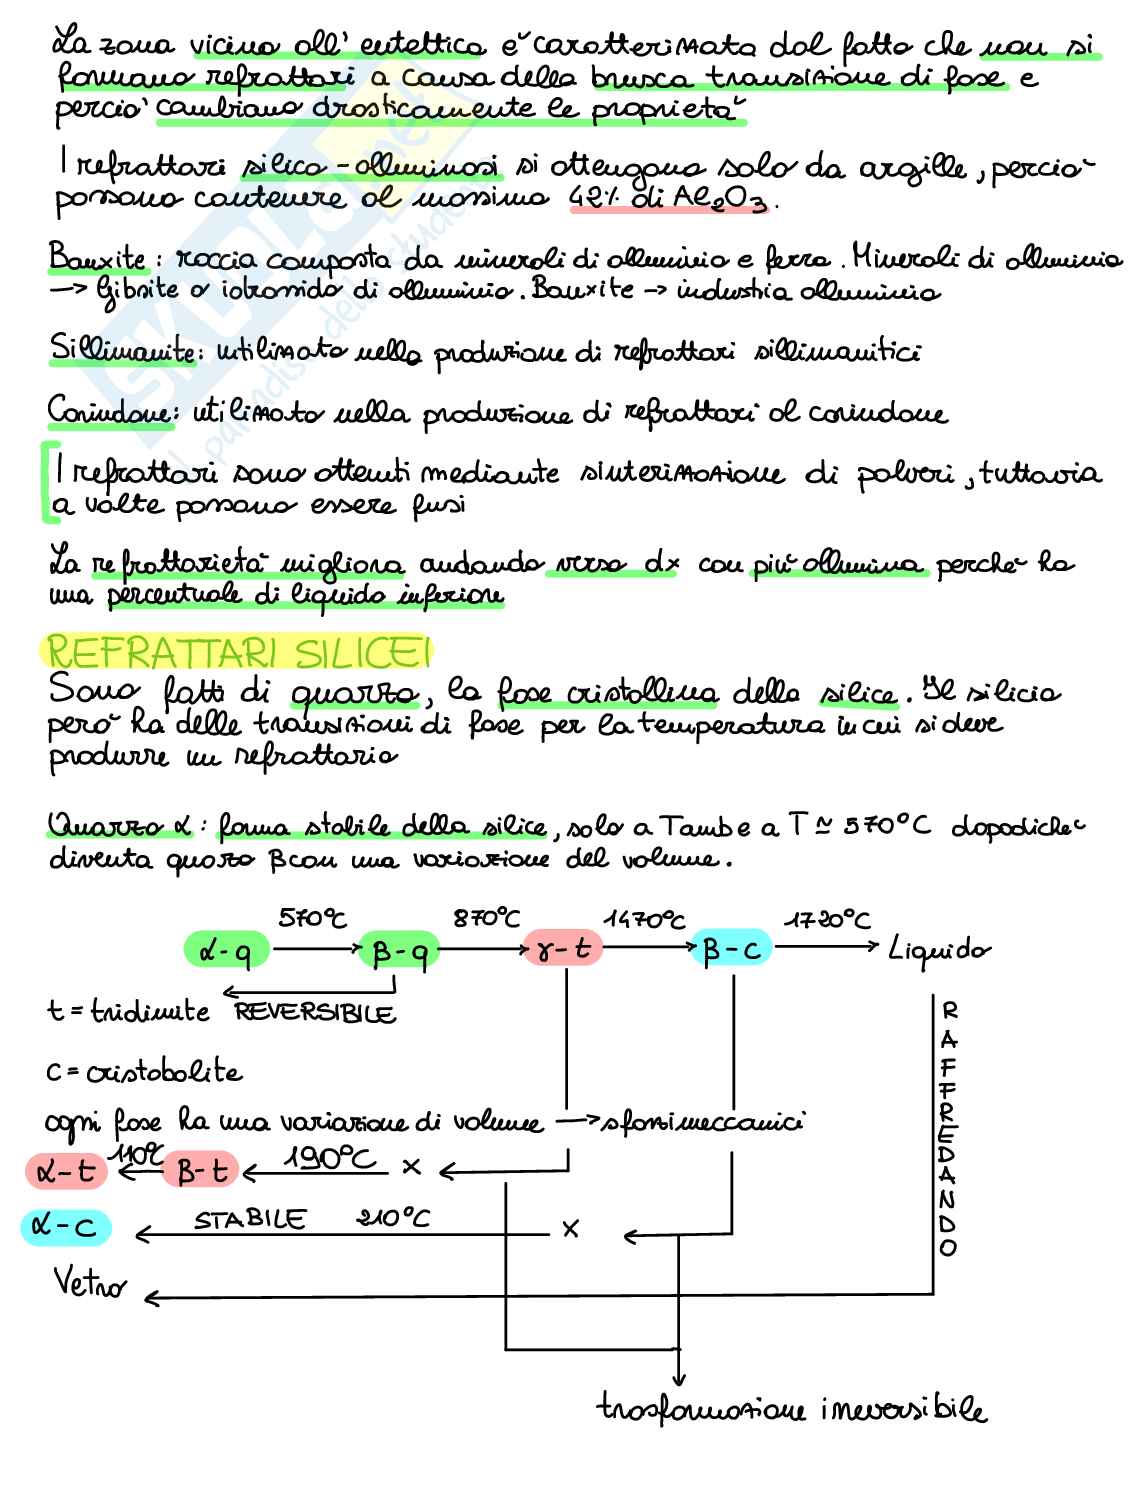 La zona vicino all' eutettico è caratterizzata dal fatto che non si
formano refrattari a causa della brusca transizione di fase e
perciò cambiano drasticamente le proprietà
I refrattari silico-alluminosi si ottengono solo da argille, perciò
possono contenere al massimo 42% di Al2O3.
Bauxite: roccia composta da minerali di alluminio e ferro. Minerali di alluminio
→ Gibsite o idrossido di alluminio. Bauxite → industria alluminio
Sillimanite: utilizzato nella produzione di refrattari sillimanitici
Corindone: utilizzato nella produzione di refrattari al corindone
I refrattari sono ottenuti mediante sinterizzazione di polveri, tuttavia
a volte possono essere fusi
La refrattarietà migliora andando verso dx con più allumina perchè ha
una percentuale di liquido inferiore
REFRATTARI SILICEI
Sono fatti di quarzo, la fase cristallina della silice. Il silicio
però ha delle transizioni di fase per la temperatura in cui si deve
produrre un refrattario
Quarzo α: forma stabile della silice, solo a Tamb e a T ≃ 570°C dopodiche
diventa quarzo β con una variazione del volume.
570°C 870°C 1470°C 1720°C
α-q → β-q → γ-t → β-c → Liquido
t = tridimite REVERSIBILE
c = cristobalite
ogni fase ha una variazione di volume → sforzi meccanici
α-t ← 110°C β-t ← 190°C x ←
α-c ← STABILE 210°C x ←
Vetro ←
RAFFREDANDO
trasformazione irreversibile
SKUOLA.net
il paradiso dello studente